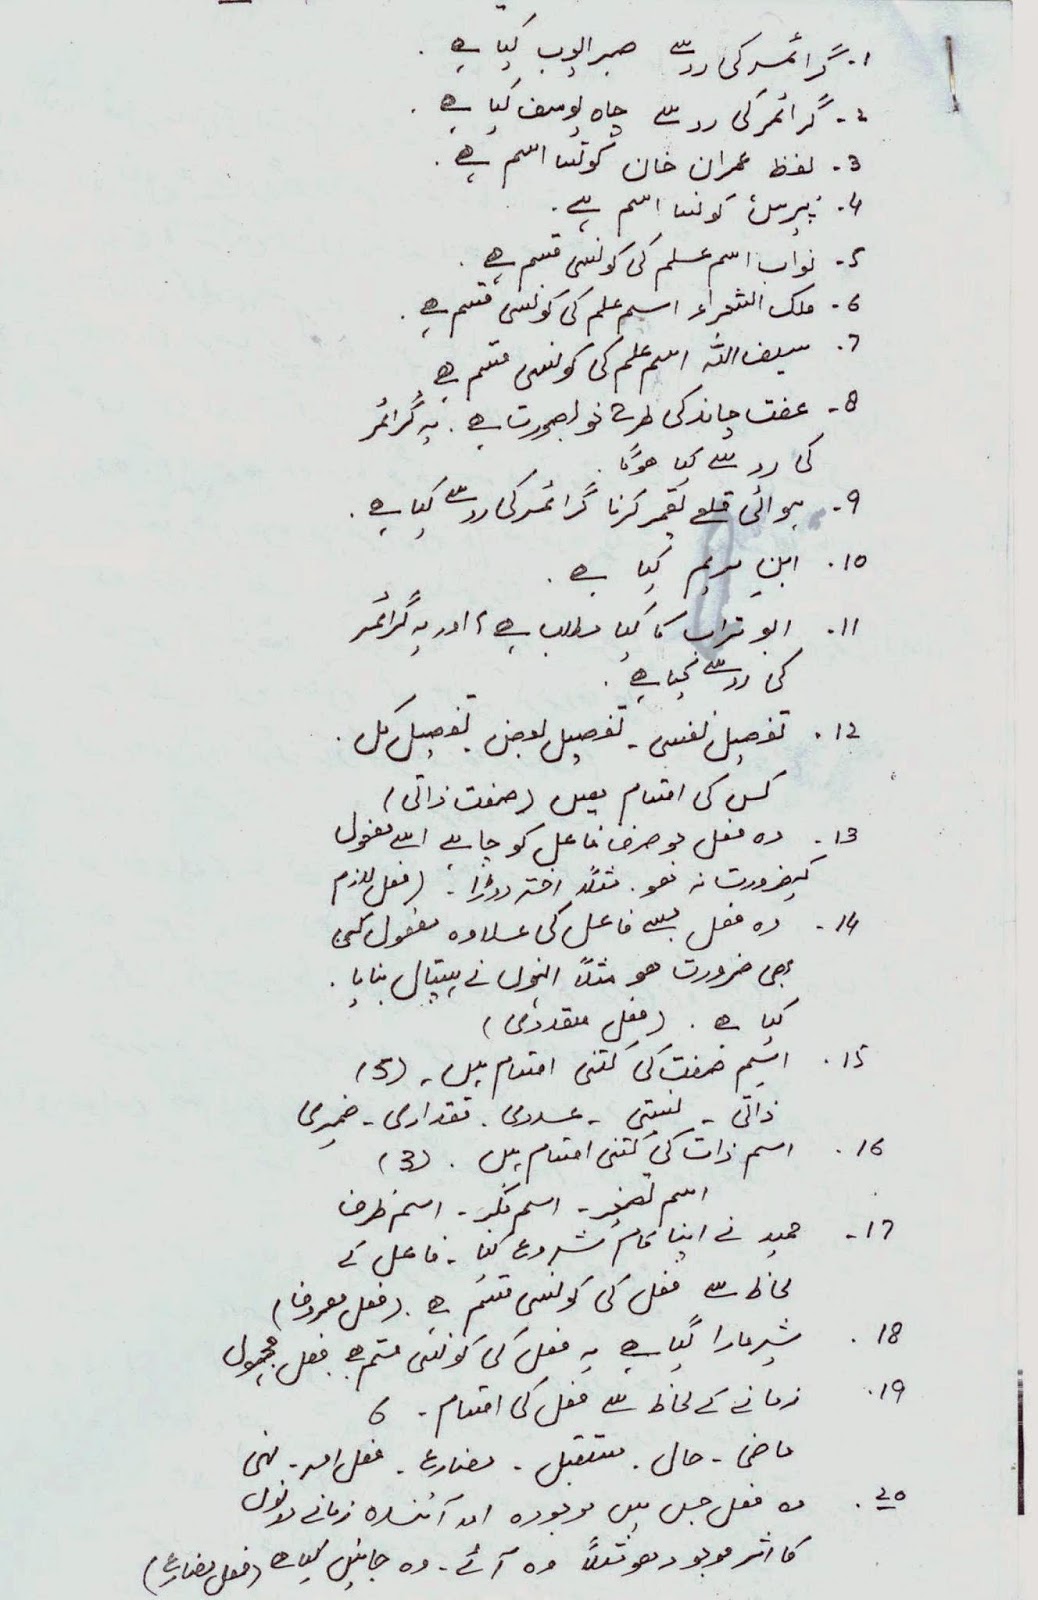 1۔ گرائمر کی رو سے صبر ایوب کیا ہے .
2۔ گرائمر کی رو سے چاہ یوسف کیا ہے .
3۔ لفظ عمران خان کونسا اسم ہے .
4۔ کونسا اسم ہے .
5۔ نواب اسم علم کی کونسی قسم ہے .
6۔ ملک الشعراء اسم علم کی کونسی قسم ہے .
7۔ سیف اللہ اسم علم کی کونسی قسم ہے
8۔ عفت چاند کی طرح خوبصورت ہے . یہ گرائمر
کی رو سے کیا ہوگا .
9۔ ہوائی قلعے تعمیر کرنا گرائمر کی رو سے کیا ہے .
10۔ ابن مریم کیا ہے .
11۔ ابو تراب کا کیا مطلب ہے ؟ اور یہ گرائمر
کی رو سے کیا ہے .
12۔ تفصیل نفسی ۔ تفصیل بعض ۔ تفصیل کل .
کس کی اقسام ہیں (صفت ذاتی)
13۔ وہ فعل جو صرف فاعل کو چاہے اسے مفعول
کی ضرورت نہ ہو . مثلاً اختر دوڑا ۔ (فعل لازم
14۔ وہ فعل جسے فاعل کی علاوہ مفعول کی
بھی ضرورت ہو مثلاً انہوں نے ہسپتال بنایا .
کیا ہے . (فعل متعدی)
15۔ اسم صفت کی کتنی اقسام ہیں ۔ (5)
ذاتی ۔ نسبتی ۔ عددی ۔ مقداری ۔ ضمیری
16۔ اسم ذات کی کتنی اقسام ہیں . (3)
اسم تصغیر ۔ اسم مکبر ۔ اسم ظرف
17۔ حمید نے اپنا کام شروع کیا ۔ فاعل کے
لحاظ سے فعل کی کونسی قسم ہے . (فعل معروف)
18۔ شیر مارا گیا ہے یہ فعل کی کونسی قسم ہے فعل مجہول
19۔ زمانے کے لحاظ سے فعل کی اقسام ۔ 6
ماضی ۔ حال . مستقبل ۔ مضارع ۔ فعل امر ۔ نہی
20۔ وہ فعل جس میں موجودہ اور آئندہ زمانے دونوں
کا اثر موجود ہو مثلاً وہ آئے ۔ وہ جائیں کیا ہے (فعل مضارع)